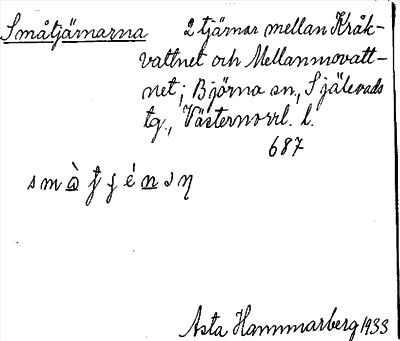 Småtjärnarna 2 tjärnar mellan Kråk-
vattnet och Mellanmovatt-
net; Björna sn, Själevads
tg., Västernorrl. l.
687
Asta Hammarberg 1933